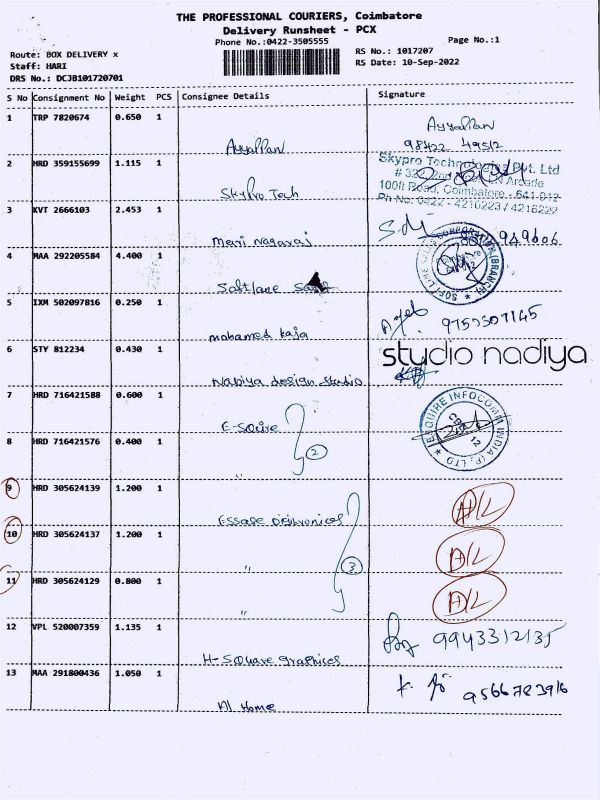 THE PROFESSIONAL COURIERS, Coimbatore
Delivery Runsheet - PCX
Phone No.:0422-3505555
Page No.:1
Route: BOX DELIVERY x
Staff: HARI
DRS No.: DCJB101720701
RS No.: 1017207
RS Date: 10-Sep-2022
S No Consignment No Weight PCS Consignee Details Signature
1 TRP 7820674 0.650 1
Ayyappan Ayyappan
98422 49512
2 HRD 359155699 1.115 1
Skypro Tech
Skypro Technologies Pvt. Ltd
Arcade
100ft Road, Coimbatore - 641 012
Ph No: 0422 - 4216223 / 4216222
3 KVT 2666103 2.453 1
Mani Nagaraj
4 MAA 292205584 4.400 1
Softlane
5 IXM 502097816 0.250 1
mohamed Raja
6 STY 812234 0.430 1
Nadiya design Studio
studio nadiya
7 HRD 716421588 0.600 1
E-Squire
ENQUIRE INFOCOMM INDIA (P) LTD
8 HRD 716421576 0.400 1
" 2
9 HRD 305624139 1.200 1
A/L
10 HRD 305624137 1.200 1
" 3 A/L
11 HRD 305624129 0.800 1
" A/L
12 VPL 520007359 1.135 1
H-Square graphices
9943312135
13 MAA 291800436 1.050 1
AI Home
9566783916